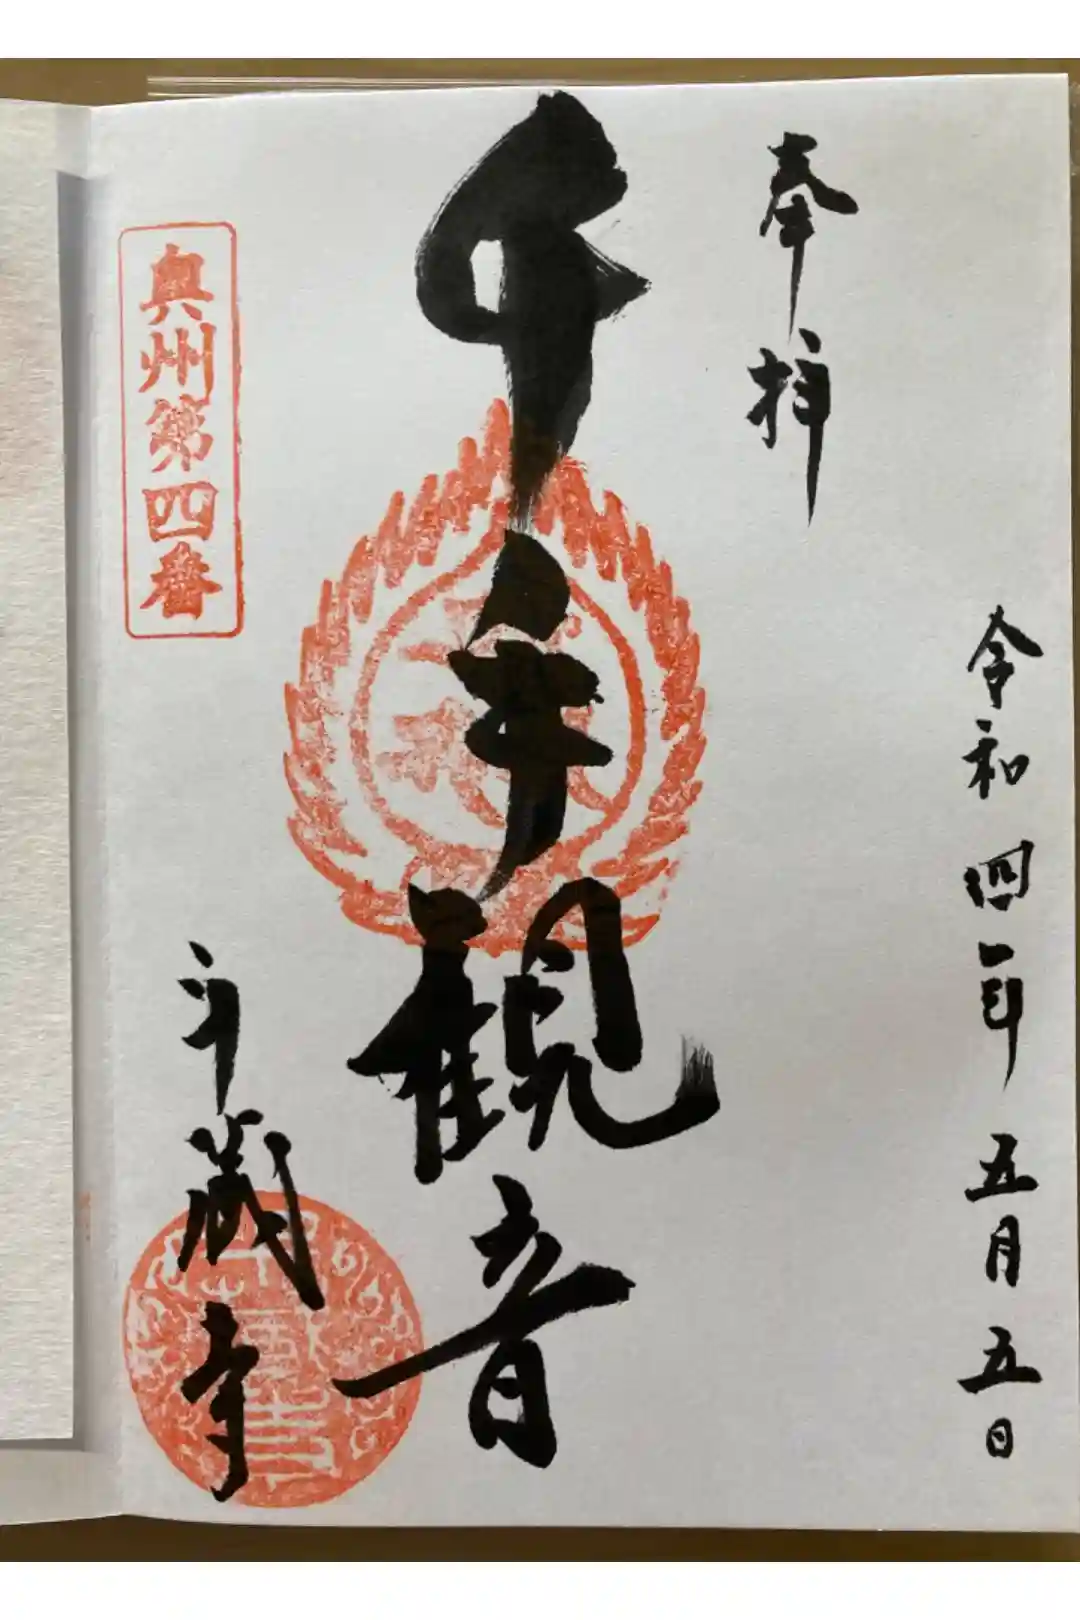 令和四年五月五日
奉拝
千手観音
奥州第四番
斗蔵寺